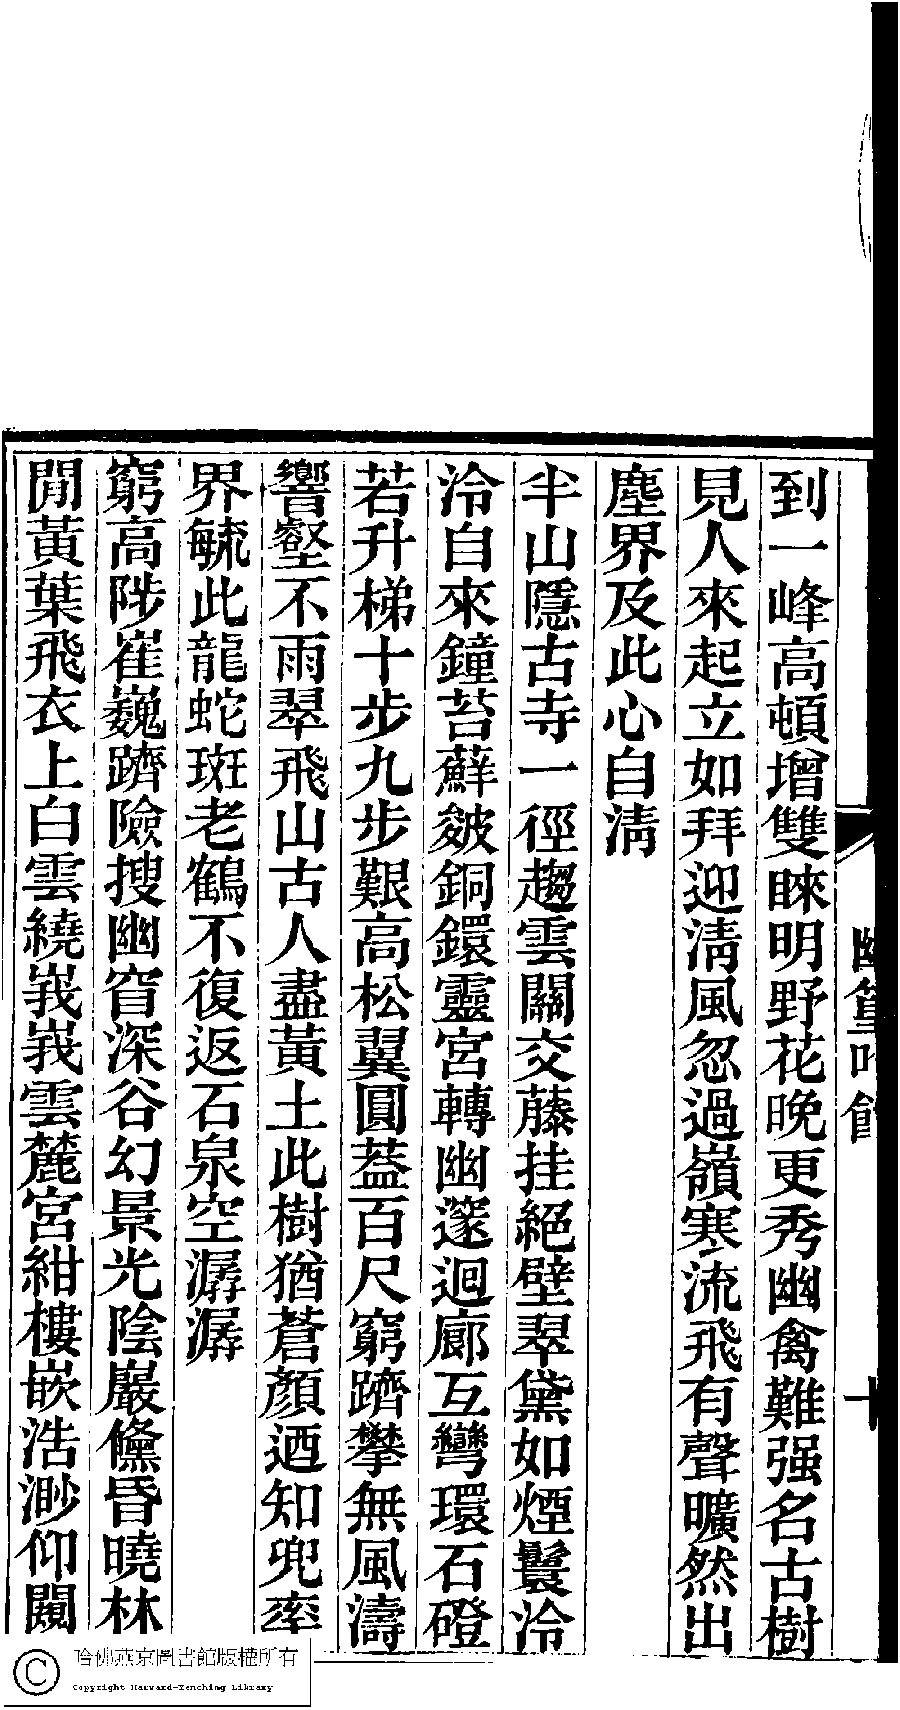 到一峰高頓增雙睞明野花晚更秀幽禽難强名古樹
見人來起立如拜迎淸風忽過嶺寒流飛有聲曠然出
塵界及此心自淸
半山隱古寺一徑趨雲關交藤挂絕壁翠黛如煙鬟泠
泠自來鐘苔蘚皴銅鐶靈宮轉幽邃迴廊互彎環石磴
若升梯十步九步艱高松翼圓葢百尺窮躋攀無風濤
響壑不雨翠飛山古人盡黃土此樹猶蒼顏迺知兜率
界毓此龍蛇斑老鶴不復返石泉空潺潺
窮高陟崔巍躋險搜幽窅深谷幻景光陰巖儵昏曉林
閒黃葉飛衣上白雲繞峩峩雲麓宮紺樓嵌浩渺仰闚
幽篁吟館
十
哈佛燕京圖書館版權所有
Copyright Harvard-Yenching Library